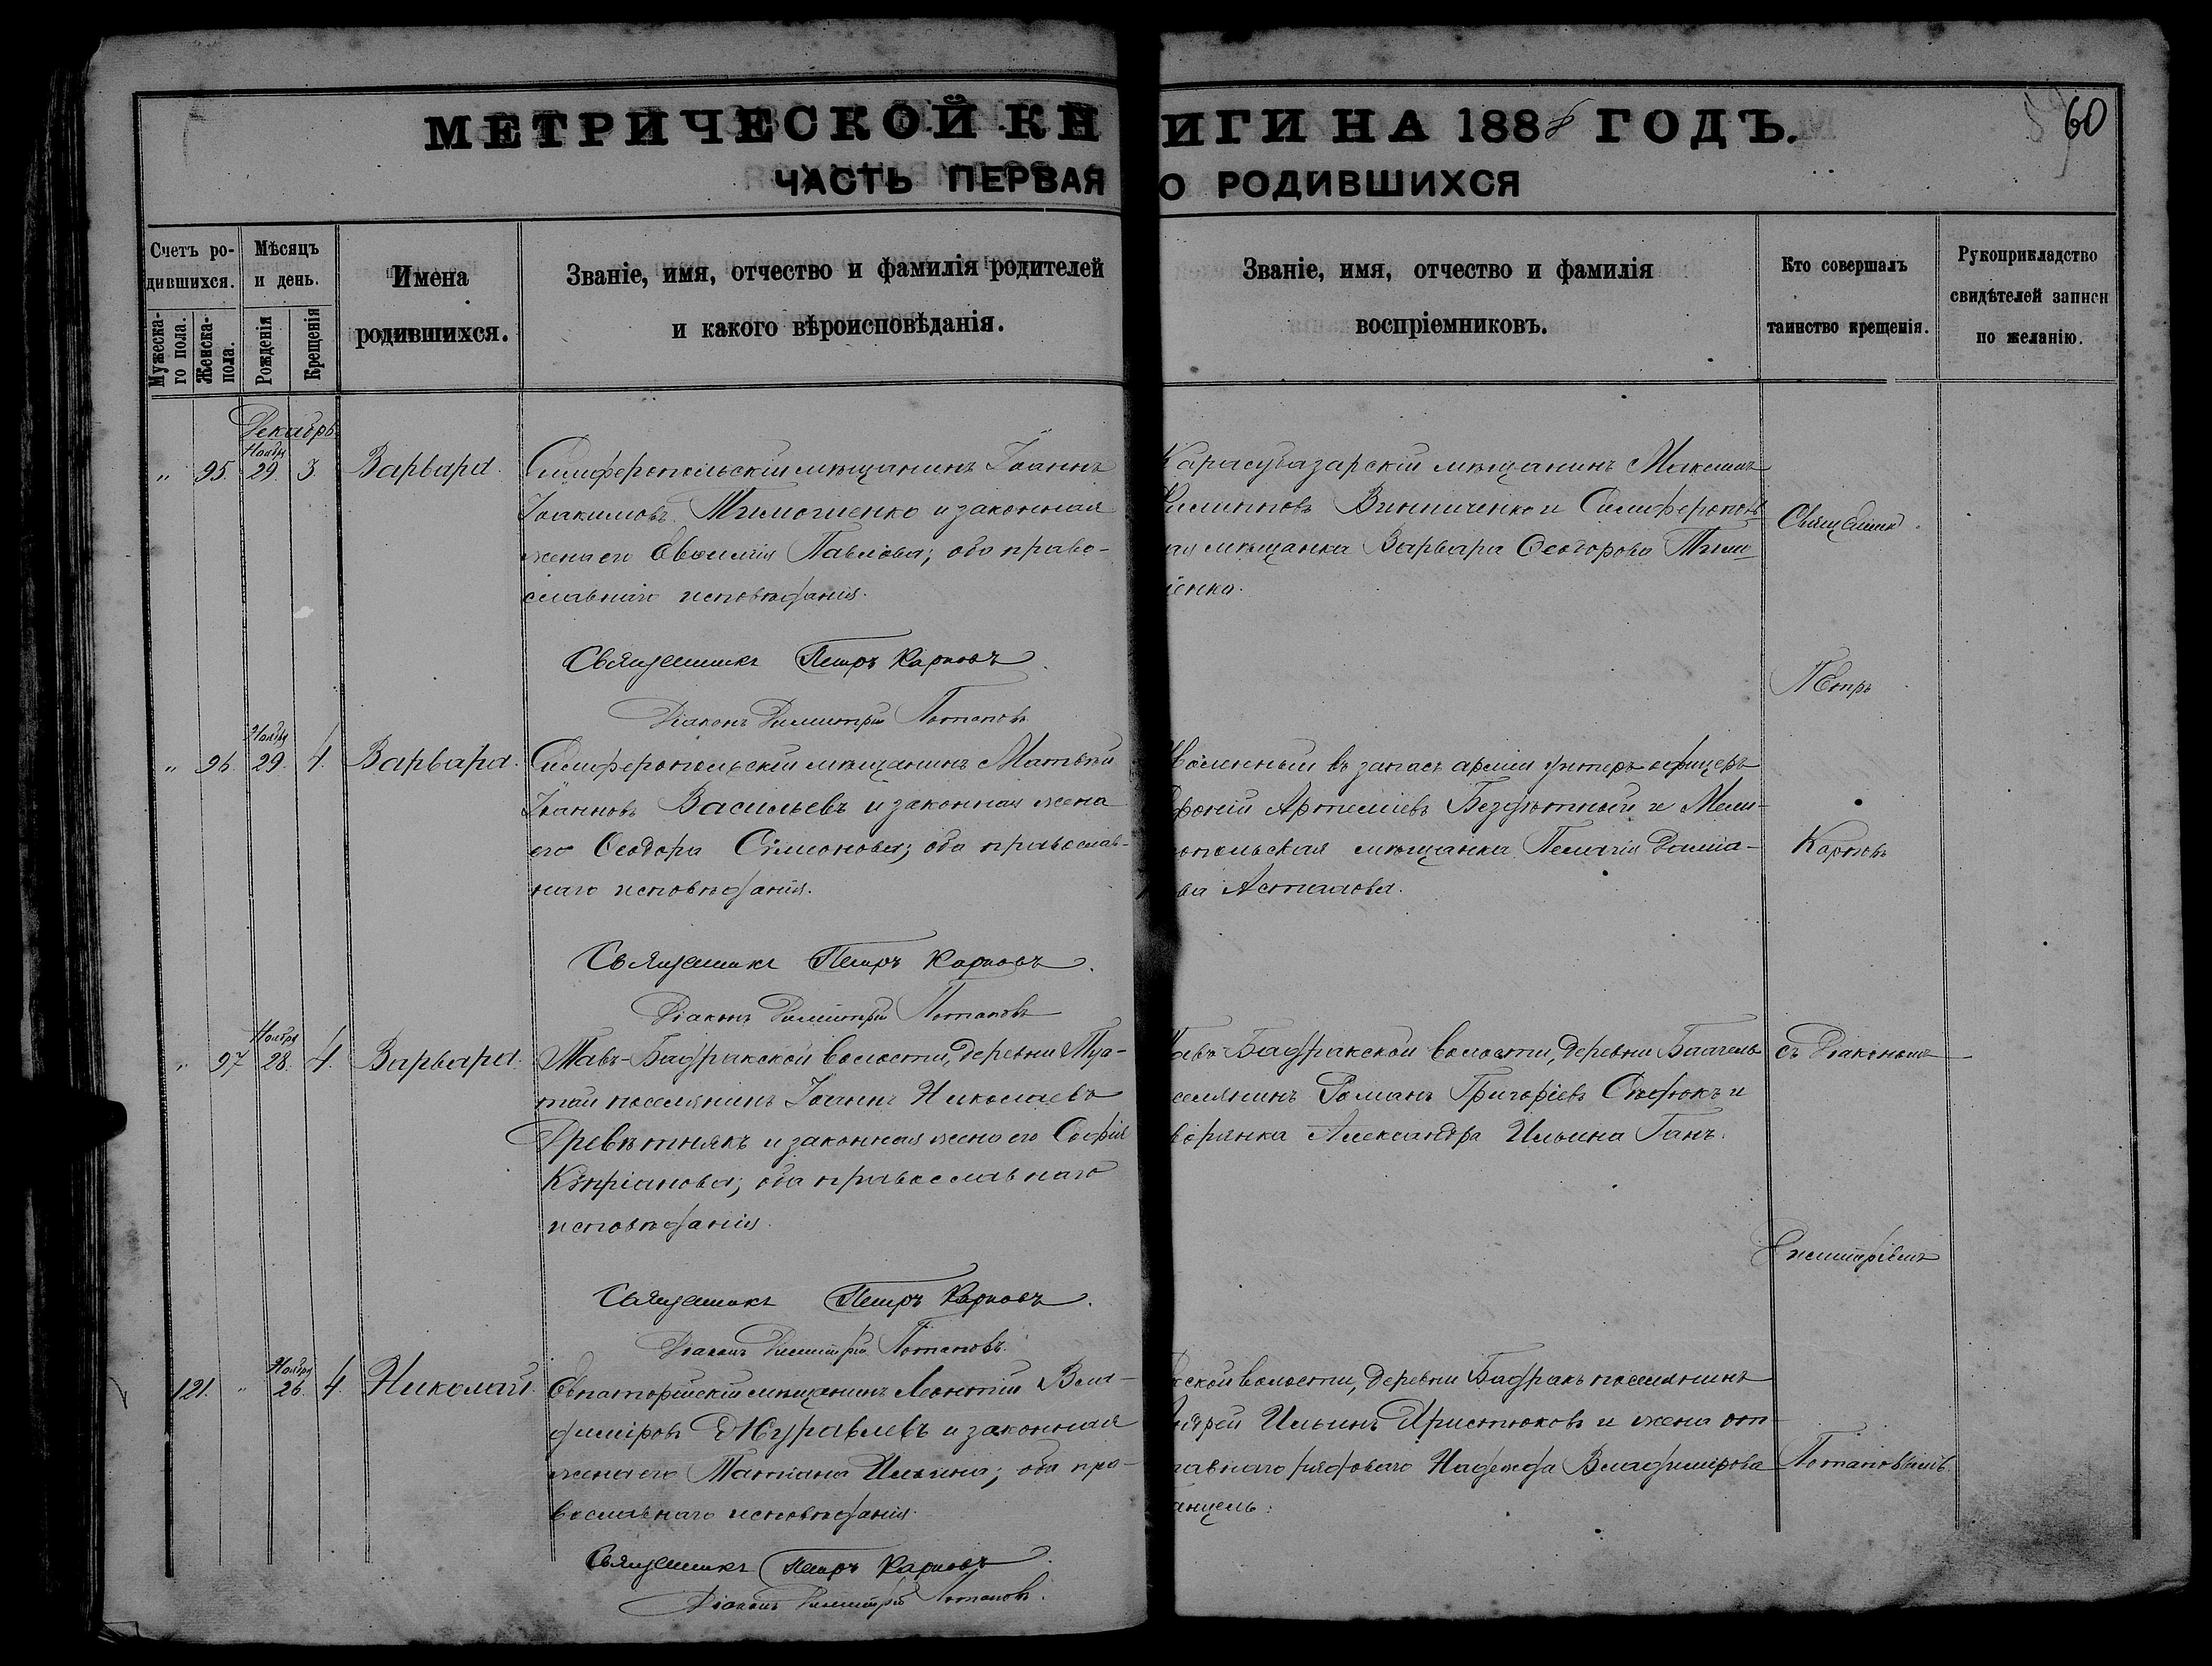 МЕТРИЧЕСКОЙ КНИГИ НА 1888 ГОДЪ.
60
ЧАСТЬ ПЕРВАЯ О РОДИВШИХСЯ
Счетъ ро-
дившихся.
Мужеска-
го пола.
Женска-
пола.
Мѣсяцъ
и день.
Рожденія
Крещенія
Имена
родившихся.
Званіе, имя, отчество и фамилія родителей
и какого вѣроисповѣданія.
Званіе, имя, отчество и фамилія
воспріемниковъ.
Кто совершалъ
таинство крещенія.
Рукоприкладство
свидѣтелей записи
по желанію.
Декабрь
Ноября
" 95. 29. 3. Варвара.
Симферопольскій мѣщанинъ Іоаннъ
Іоакимовъ Тимошенко и законная
жена его Евѳимія Павлова; оба право-
славнаго исповѣданія.
Священникъ Петръ Карповъ.
Діаконъ Димитрій Потаповъ
Карасубазарскій мѣщанинъ Максимъ
Филипповъ Винниченко и Симферополь
ая мѣщанка Варвара Ѳеодорова Тимо
іенко.
Ноября
" 96. 29. 4. Варвара.
Симферопольскій мѣщанинъ Матвѣй
Іоанновъ Васильевъ и законная жена
его Ѳеодора Симонова; оба православ-
наго исповѣданія.
Священникъ Петръ Карповъ.
Діаконъ Димитрій Потаповъ
воленный въ запасъ арміи унтеръ офицеръ
фоній Артеміевъ Бездѣтный и Мели-
опольская мѣщанка Пелагія Даміа-
ва Асталова.
Ноября
" 97 28. 4. Варвара.
Тавъ-Бадракской волости, деревни Туа-
тай поселянинъ Іоаннъ Николаевъ
Древѣтнякъ и законная жена его Софія
Кѵпріанова; оба православнаго
исповѣданія.
Священникъ Петръ Карповъ.
Діаконъ Димитрій Потаповъ.
Тавъ-Бадракской волости, деревни
селянинъ Романъ Григоріевъ и
ворянка Александра Ильина Ганъ.
Ноября
121. " 26. 4. Николай.
Евпаторійскій мѣщанинъ Леонтій Вла-
диміровъ Журавлевъ и законная
жена его Татіана Ильина; оба пра-
вославнаго исповѣданія.
Священникъ Петръ Карповъ.
Діаконъ Димитрій Потаповъ.
ской волости, деревни Бадракъ поселянинъ
Андрей Ильинъ Христюковъ и жена от-
тавнаго рядоваго Надежда Владимірова
анцель.
Священникъ
Петръ
Карповъ
съ Діакономъ
Димитріемъ
Потаповымъ.